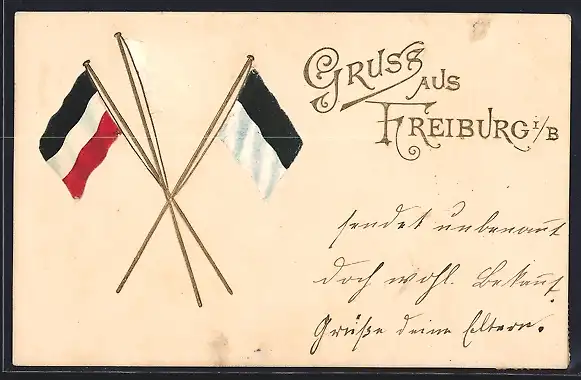 GRUSS
AUS
FREIBURG I/B
sendet unbenannt
doch wohl. Bekannt.
Grüße deine Eltern.